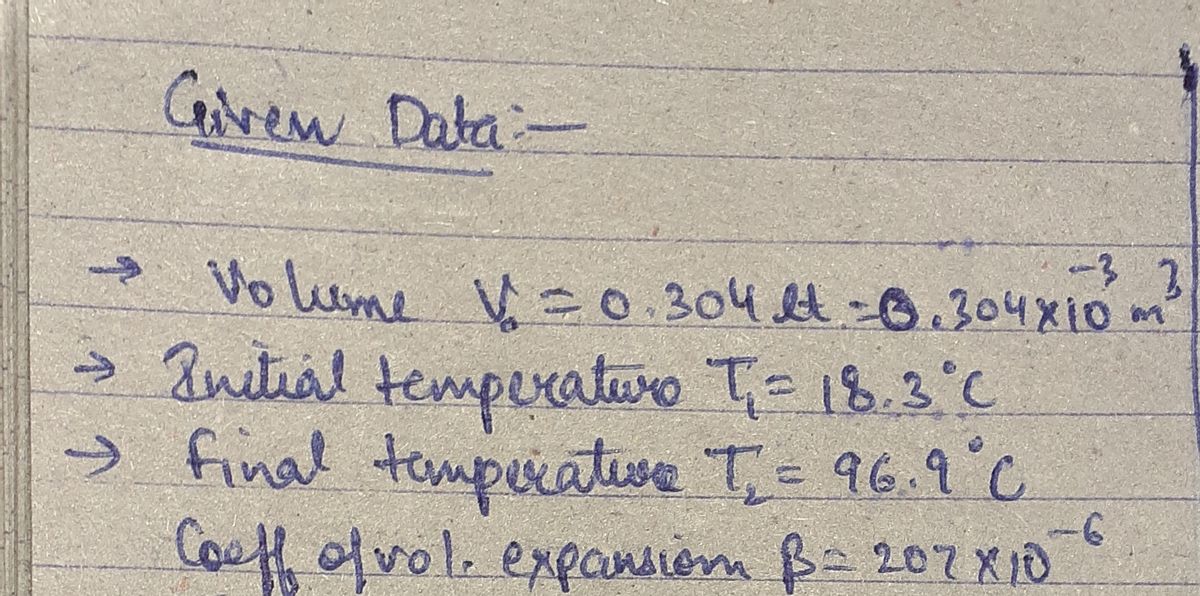 Given Data:-
→ Volume V₀ = 0.304 lt = 0.304×10⁻³ m³
→ Initial temperature T₁ = 18.3°C
→ Final temperature T₂ = 96.9°C
Coeff of vol. expansion β = 207×10⁻⁶